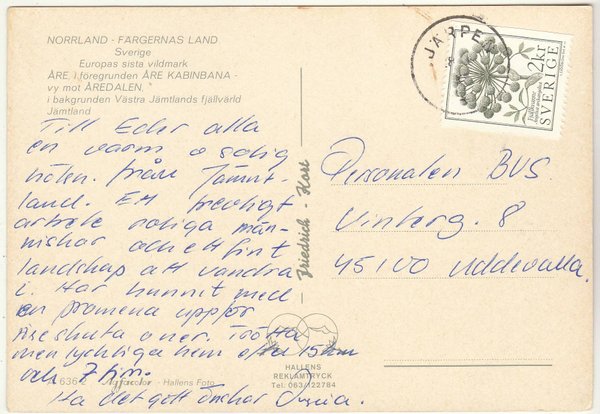 NORRLAND - FÄRGERNAS LAND
Sverige
Europas sista vildmark
ÅRE, i föregrunden ÅRE KABINBANA -
vy mot ÅREDALEN,
i bakgrunden Västra Jämtlands fjällvärld
Jämtland
Till Eder alla
en varm o solig
hälsn. från Jämt-
land. Ett trevligt
arbete roliga män-
niskor och ett fint
landskap att vandra
i. Har hunnit med
en promenad uppför
Åreskutan o ner. Trötta
men lyckliga hem efter 15km
och 7 tim.
Ha det gott önskar
JÄRPEN
2kr
SVERIGE
Personalen BUS.
Vinterg. 8
45100 Uddevalla.
Friedrich - Kort
HALLENS
REKLAMTRYCK
Tel. 063/122784
- Hallens Foto